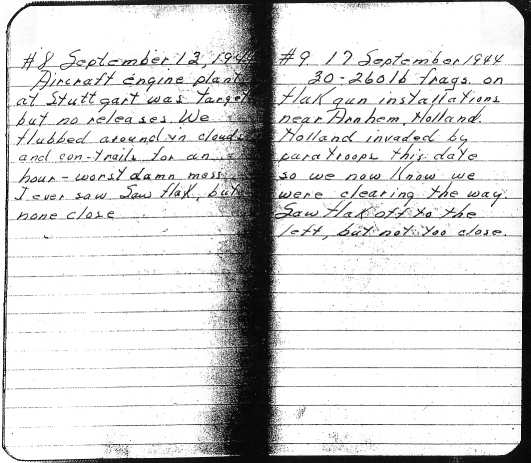 #8 September 13, 1944
Aircraft engine plant
at Stuttgart was target
but no releases. We
flubbed around in clouds
and con-trails for an
hour - worst damn mess
I ever saw Saw flak, but
none close
#9 17 September 1944
30-260 lb frags. on
flak gun installations
near Arnhem, Holland.
Holland invaded by
paratroops this date
so we now know we
were clearing the way.
Saw flak off to the
left, but not too close.